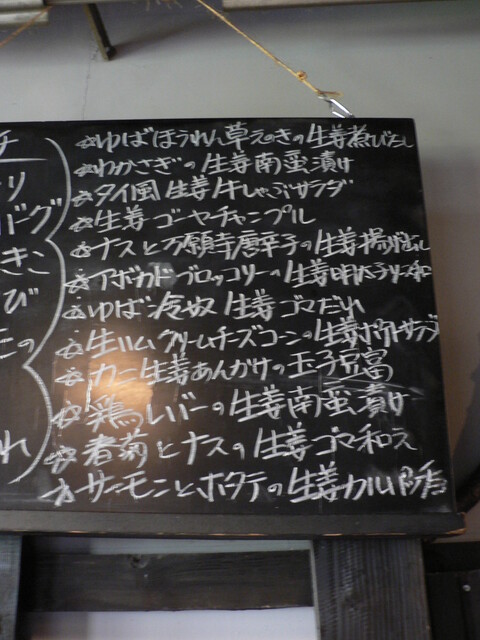 ☆ゆばほうれん草えのきの生姜煮びたし
☆わかさぎの生姜南蛮漬け
☆タイ風生姜牛しゃぶサラダ
☆生姜ゴーヤチャンプル
☆ナスと万願寺唐辛子の生姜揚げ出し
☆アボカドブロッコリーの生姜明太子和
☆ゆば冷奴生姜ゴマだれ
☆生ハムクリームチーズコーンの生姜ポテトサラダ
☆カニ生姜あんかけの玉子豆富
☆鶏レバーの生姜南蛮漬け
☆春菊とナスの生姜ゴマ和え
☆サーモンとホタテの生姜カルパッチョ
チ
り
バーグ
きこ
び
れ